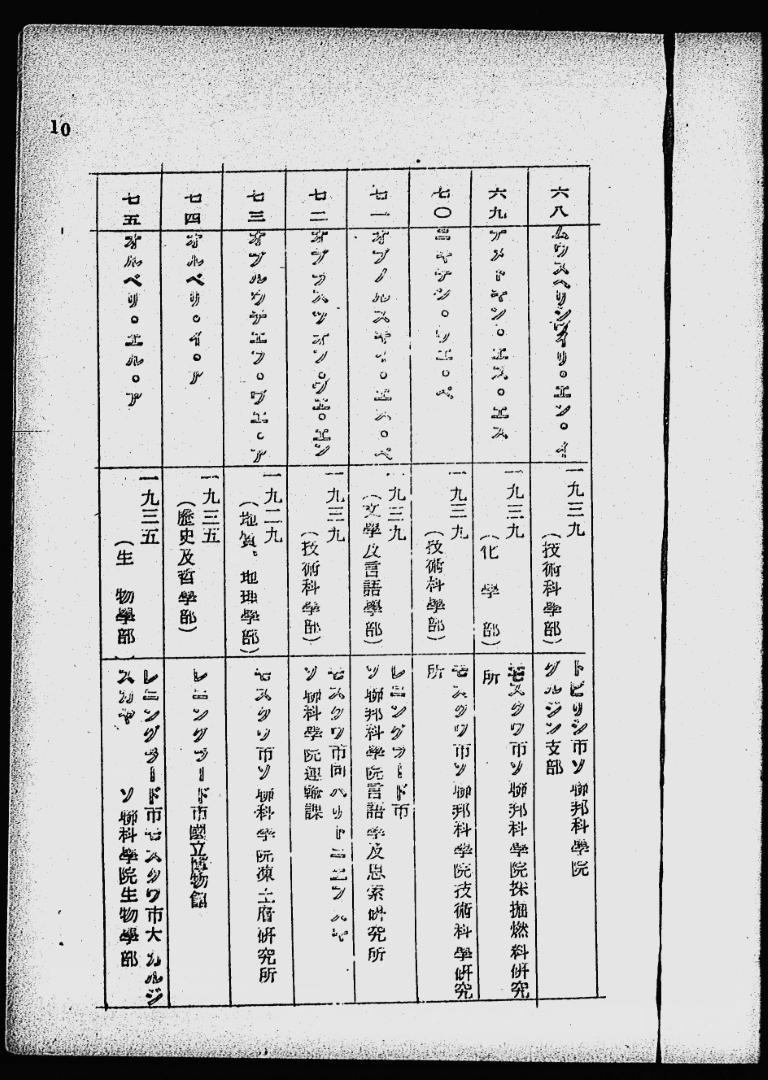 10
六八
ムウスヘリシヴイリ。エン。イ
一九三九
(技術科學部)
トビリシ市ソ聯邦科學院
グルジン支部
六九
ナメトキン。エス。エス
一九三九
(化學部)
モスクワ市ソ聯邦科學院採掘燃料研究
所
七〇
ニキチン。ウエ。ペ
一九三九
(技術科學部)
モスクワ市ソ聯邦科學院技術科學研究
所
七一
オブノルスキイ。エス。ペ
一九三九
(文學及言語學部)
レニングラード市
ソ聯邦科學院言語學及思索研究所
七二
オブラスツオフ。ヴエ。エン
一九三九
(技術科學部)
モスクワ市同ハリトニエフ
ソ聯科學院運輸課
七三
オブルウチエフ。ヴエ。ア
一九二九
(地質、地理學部)
モスクワ市ソ聯科學院凍土府研究所
七四
オルベリ。イ。ア
一九三五
(歷史及哲學部)
レニングラード市國立博物館
七五
オルベリ。エル。ア
一九三五
(生物學部)
レニングラード市モスクワ市大カルジ
スカヤ ソ聯科學院生物學部